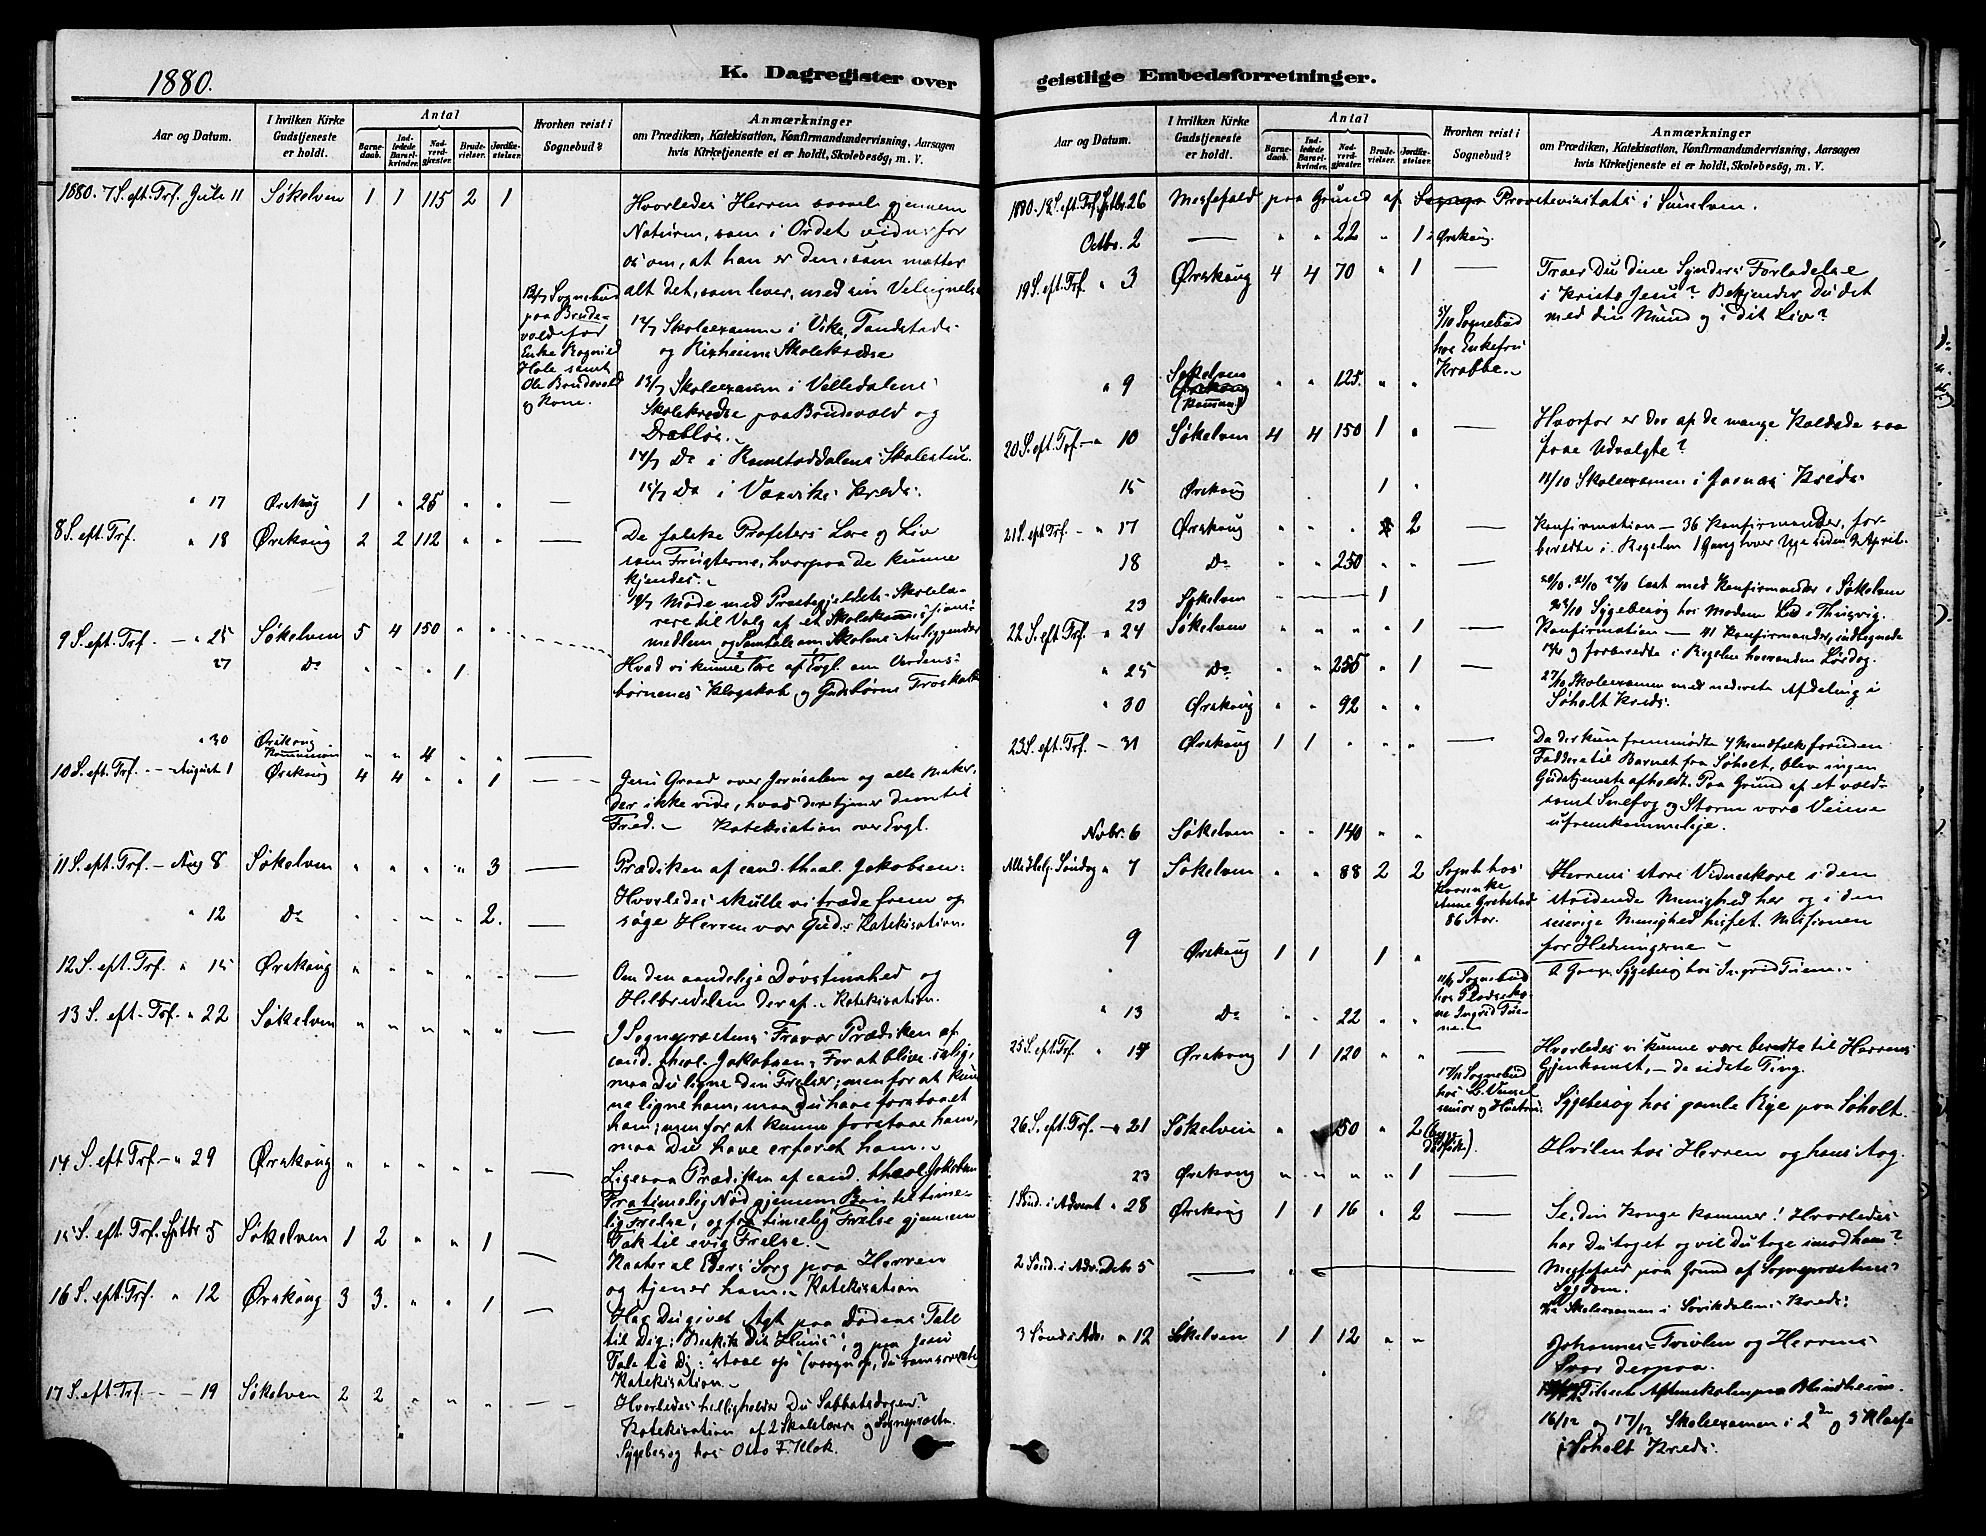 1880.
K. Dagregister over
Aar og Datum.
I hvilken Kirke Gudstjeneste er holdt.
Antal
Barnedaab.
Indledede Barselkvinder.
Nadverdgjæster.
Brudevielser.
Jordfæstelser.
Hvorhen reist i Sognebud?
Anmærkninger
om Prædiken, Katekisation, Konfirmandundervisning, Aarsagen
hvis Kirketjeneste ei er holdt, Skolebesøg, m. V.
1880. 7 S. eft. Trf. Juli 11 Søkelven 1 1 115 2 1
Hvorledes Herren saavel gjennem
Naturen, som i Ordet vidner for
os om, at han er den, som mætter
alt det, som lever, med sin Velsignelse
12/7 Sognebud
paa Brude-
vold for
Enke Ragnild
Hole samt
Ole Brudevold
og Kone.
12/7 Skoleexamen i Vike, Tandstads-
og Rixheims Skolekredse
13/7 Skoleexamen i Velledalens
Skolekredse paa Brudevold og
Drabløs.
14/7 Do i Ramstaddalens Skolestue
15/7 Do i Vaavike Kreds.
" 17 Ørskoug 1 " 25 " " —
8 S. eft. Trf. " 18 Ørskoug 2 2 112 " " —
De falske Profeters Lære og Liv
som Frugterne, hvorpaa de kunne
kjendes.
19/7 Møde med Præstegjeldets Skolelæ-
rere til Valg af et Skolekommissions-
medlem og Samtale om Skolens Anliggender
9 S. eft. Trf. — " 25 Søkelven 5 4 150 " "
Hvad vi kunne lære af Evgl. om Verdens-
børnenes Klogskab og Gudsbørns Troskab
" 27 Do " " " 1
" 30 Ørskoug Kommunion " " 4 " " —
10 S. eft. Trf. — August 1 Ørskoug 4 4 " " 1 —
Jesu Graad over Jerusalem og alle Mennesker,
der ikke vide, hvad der tjener dem til
Fred. — Katekisation over Evgl.
11 S. eft. Trf. — Aug 8 Søkelven " " " " 3 —
Prædiken af cand. theol. Jakobsen:
Hvorledes skulle vi træde frem og
søge Herren vor Gud. Katekisation.
" 12 Do " " " " 2. —
12 S. eft. Trf. " 15 Ørskoug " " " " " —
Om den aandelige Døvstumhed og
Helbredelsen deraf. Katekisation.
13 S. eft. Trf. " 22 Søkelven " " " " " —
I Sognepræstens Fravær Prædiken af
cand. theol. Jakobsen: For at blive salig,
maa Du ligne Din Frelser; men for at kun-
ne ligne ham, maa Du have forstaaet
ham; men for at kunne forstaae ham,
maa Du have erfaret ham.
14 S. eft. Trf. — " 29 Ørskoug " " " " " —
Ligesaa Prædiken af cand. theol. Jakobsen
Fra timelig Nød gjennem Bøn til time-
lig Frelse, og fra timelig Frelse gjennem
Tak til evig Frelse.
15 S. eft. Trf. Sptbr 5 Søkelven 1 2 " " 1 —
Kaster al Eders Sorg paa Herren
og tjener ham. Katekisation
16 S. eft. Trf. " 12 Ørskoug 3 3. " " 1 —
Har Du givet Agt paa Dødens Tale
til Dig: "Beskik dit Huus", og paa Jesu
Tale til Dig: "staae op" (vaagn op, du som sover etc)
Katekisation.
17 S. eft. Trf. — 19 Søkelven 2 2 " " " —
Hvorledes helligholder Du Sabbatsdagen?
Katekisation af 2 Skolelærere og Sognepræsten.
Sygebesøg hos Otto F. Klok.
geistlige Embedsforretninger.
Aar og Datum.
I hvilken Kirke Gudstjeneste er holdt.
Antal
Barnedaab.
Indledede Barselkvinder.
Nadverdgjæster.
Brudevielser.
Jordfæstelser.
Hvorhen reist i Sognebud?
Anmærkninger
om Prædiken, Katekisation, Konfirmandundervisning, Aarsagen
hvis Kirketjeneste ei er holdt, Skolebesøg, m. V.
1880. 18 S. eft. Trf. Sptbr. 26 Messefald paa Grund af Provstevisitats i Sunelven.
Octbr. 2 — " " 22 " 1 i Ørskoug.
19 S. eft. Trf. " 3 Ørskoug 4 4 70 " 1 —
Troer Du dine Synders Forladelse
i Kristo Jesu? Bekjender Du det
med din Mund og i dit Liv?
5/10 Sognebud
hos Enkefru
Krabbe.
" 9 Søkelven Ørskoug (Komun.) " " 125. " "
20 S. eft. Trf. — " 10 Søkelven 4 4 150 1 " —
Hvorfor er der af de mange Kaldede saa
faae Udvalgte?
15 Ørskoug 1 "
12/10 Skoleexamen i Kreds.
21 S. eft Trf. — " 17 Ørskoug " " " 2 —
Konfirmation — 36 Konfirmander, for-
beredte i Regelen 1 Gang hver Uge siden 9 April.
18 Do " " 250 " " —
20/10. 21/10 27/10 læst med Konfirmander i Søkelven
23 Søkelven " — 1
23/10 Sygebesøg hos Madam
22 S. eft Trf. " 24 Søkelven " " " " 1 —
Konfirmation — 41 Konfirmander, indtegnede
og forberedte i Regelen hveranden Lørdag.
" 25 Do " " 255 " 1 —
27/10 Skoleexamen med nederste Afdeling i
Søholt Kreds.
" 30 Ørskoug " " 92 " "
23 S. eft. Trf. — 31 Ørskoug 1 1 " " " —
Da der kun fremmødte 4 Mandfolk foruden
Faddere til Barnet fra Søholt, blev ingen
Gudstjeneste afholdt. Paa Grund af et vold-
somt Snefog og Storm vare Veiene
ufremkommelige.
Novbr. 6 Søkelven " " 140 " "
Alle Helg. Søndag " 7 Søkelven " " 88 2 2
Sognb. hos
Anne Grebstad
86 Aar.
Herrens store Vidneskare i den
stridende Menighed her og i den
seirige Menighed hisset. Missionen
for Hedningerne —
9 Ørskoug 1 1 1 " —
2 Gange Sygebesøg hos Ingrid Tuene.
11/11 Sognebud
hos
Ingrid Tue-
ne.
" 13 Do " " 22 " "
25 S. eft. Trf. " 14 Ørskoug 1 1 120 " " —
Hvorledes vi kunne være beredte til Herrens
Gjenkomst, — de sidste Ting.
17/11 Sognebud
hos
senior og Hustru.
Sygebesøg hos gamle Rye paa Søholt.
26 S. eft. Trf. — " 21 Søkelven " 50 " 2
Hvilen hos Herren og hans Aag.
23 Ørskoug " " " " 1 —
1 Sønd. i Advent " 28 Ørskoug 1 1 16 " 2 —
Se, din Konge kommer! Hvorledes
har Du taget og vil Du tage imod ham?
2 Sønd. i Adv. Dcbr 5 — " —
Messefald paa Grund af Sognepræstens
Sygdom.
Skoleexamen i Sørikdalens Kreds.
3 Sønd. i Adv. " 12 Søkelven 1 1 12 " "
Johannes's Tvivlen og Herrens
Svar derpaa.
Tilseet Aftenskolen paa Blindheim.
16/12 og 17/12 Skoleexamen i 2den og 3 Klasse
i Søholt Kreds.